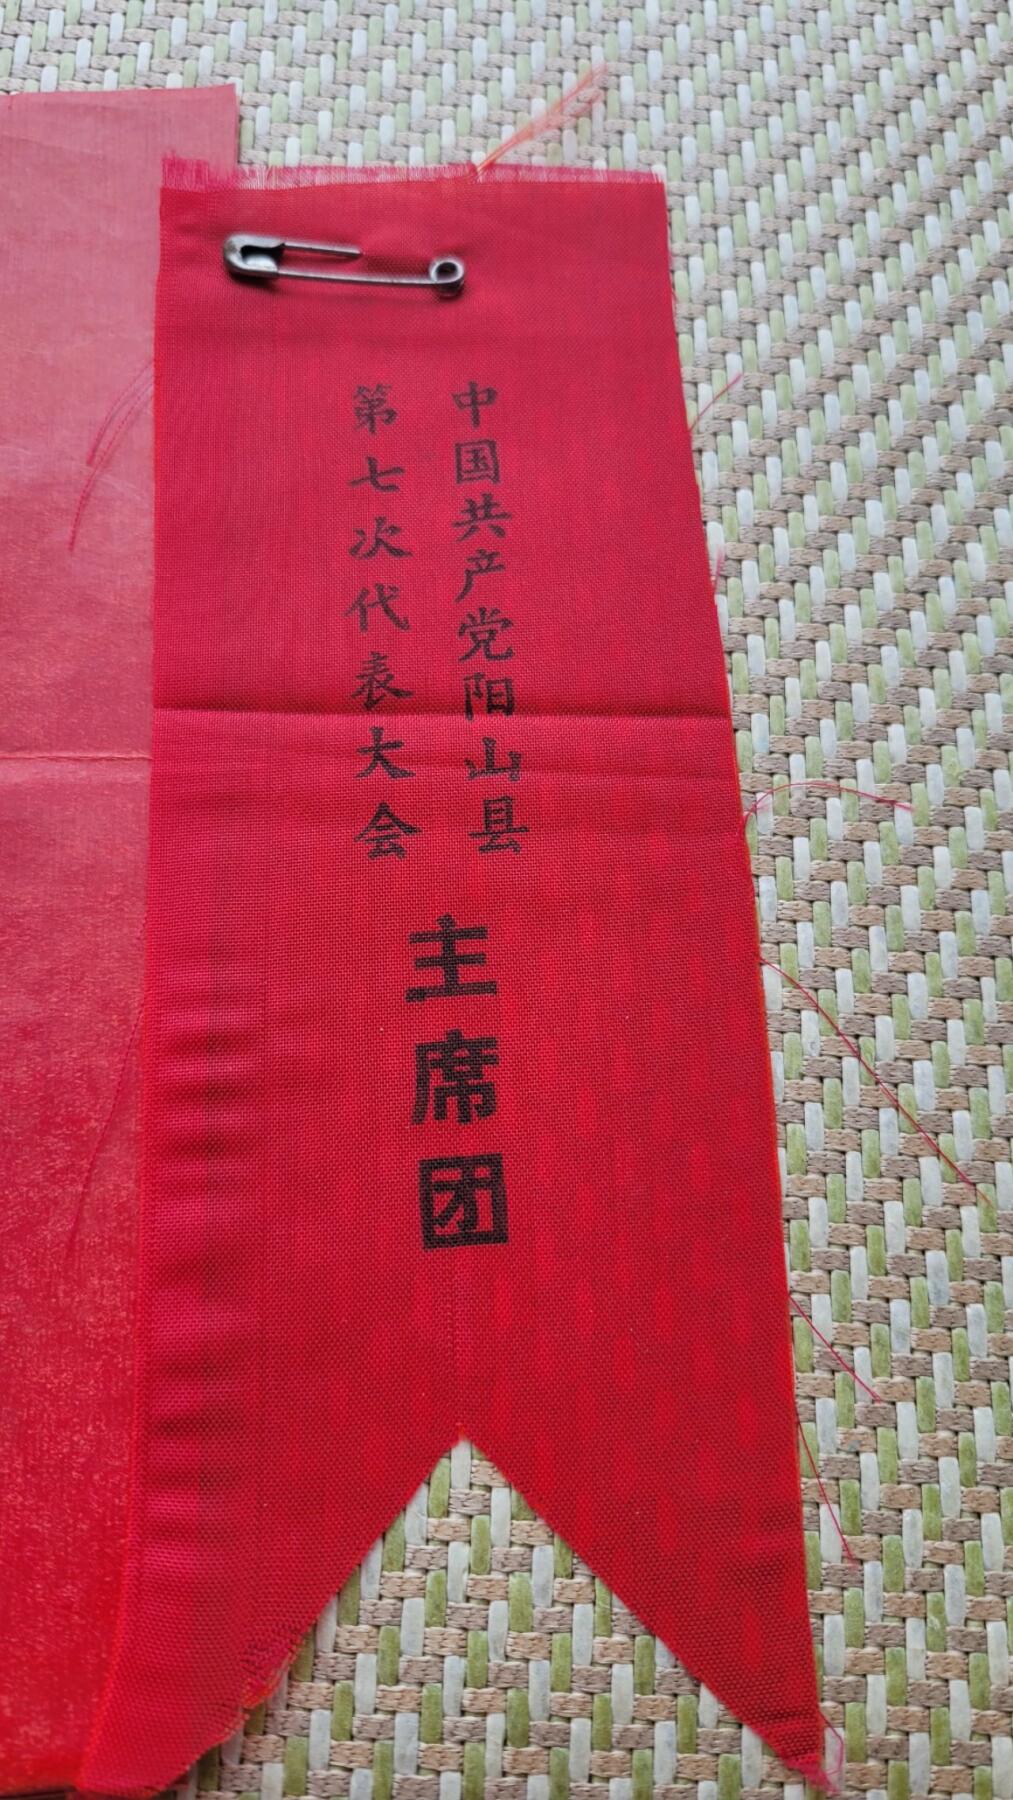 中国共产党阳山县
第七次代表大会
主席团